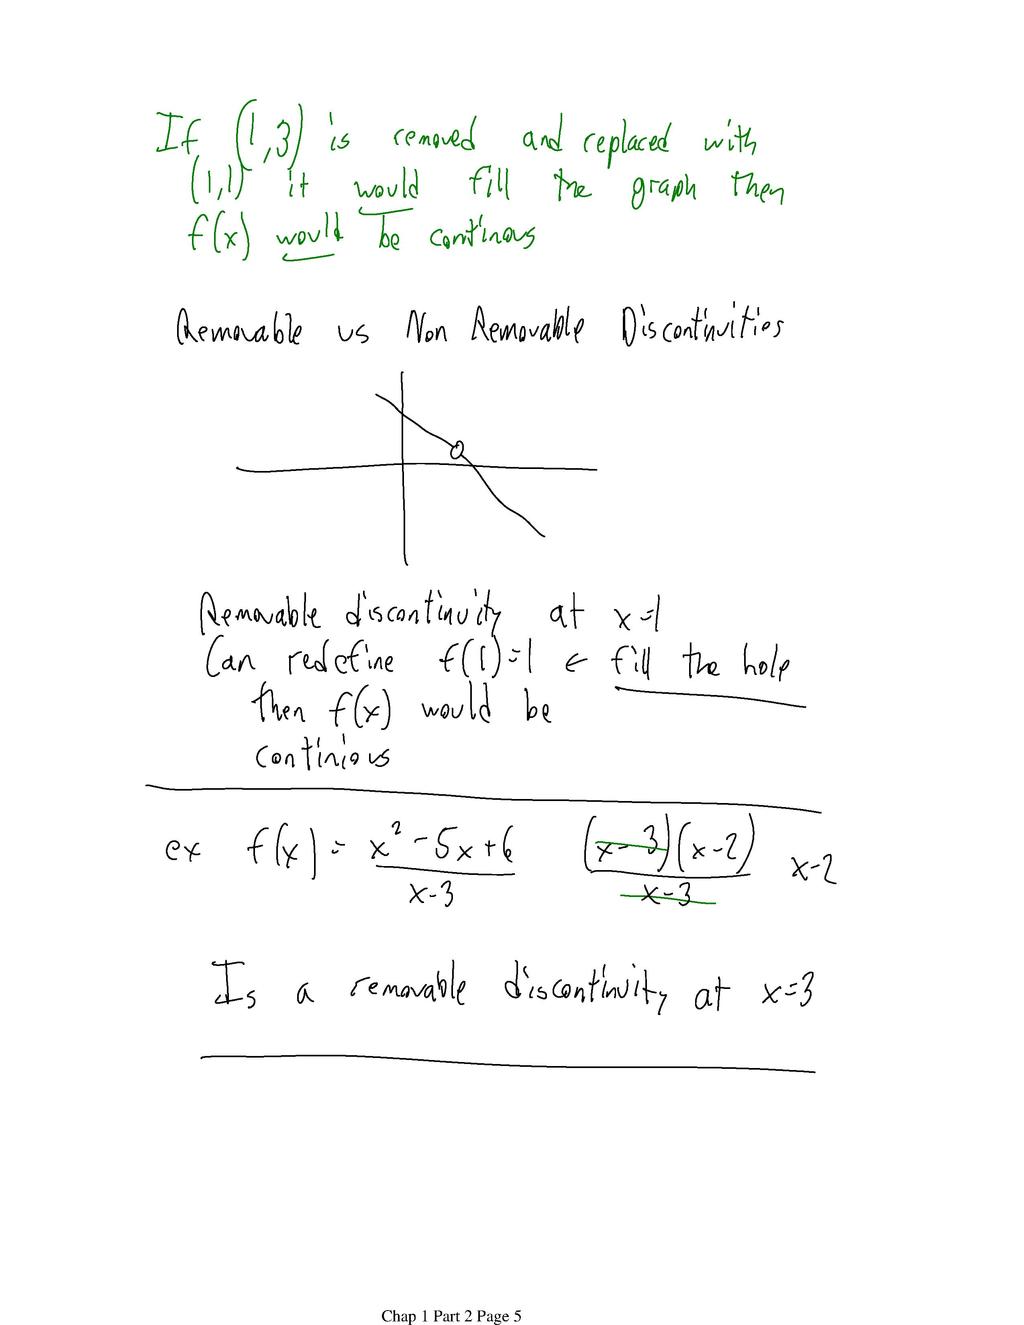 If (1,3) is removed and replaced with
(1,1) it would fill the graph then
f(x) would be continous
Removable vs Non Removable Discontinuities
Removable discontinuity at x=1
Can redefine f(1)=1 ← fill the hole
then f(x) would be
continious
ex f(x) = x² - 5x + 6 / x-3 (x-3)(x-2) / x-3 x-2
Is a removable discontinuity at x=3
Chap 1 Part 2 Page 5